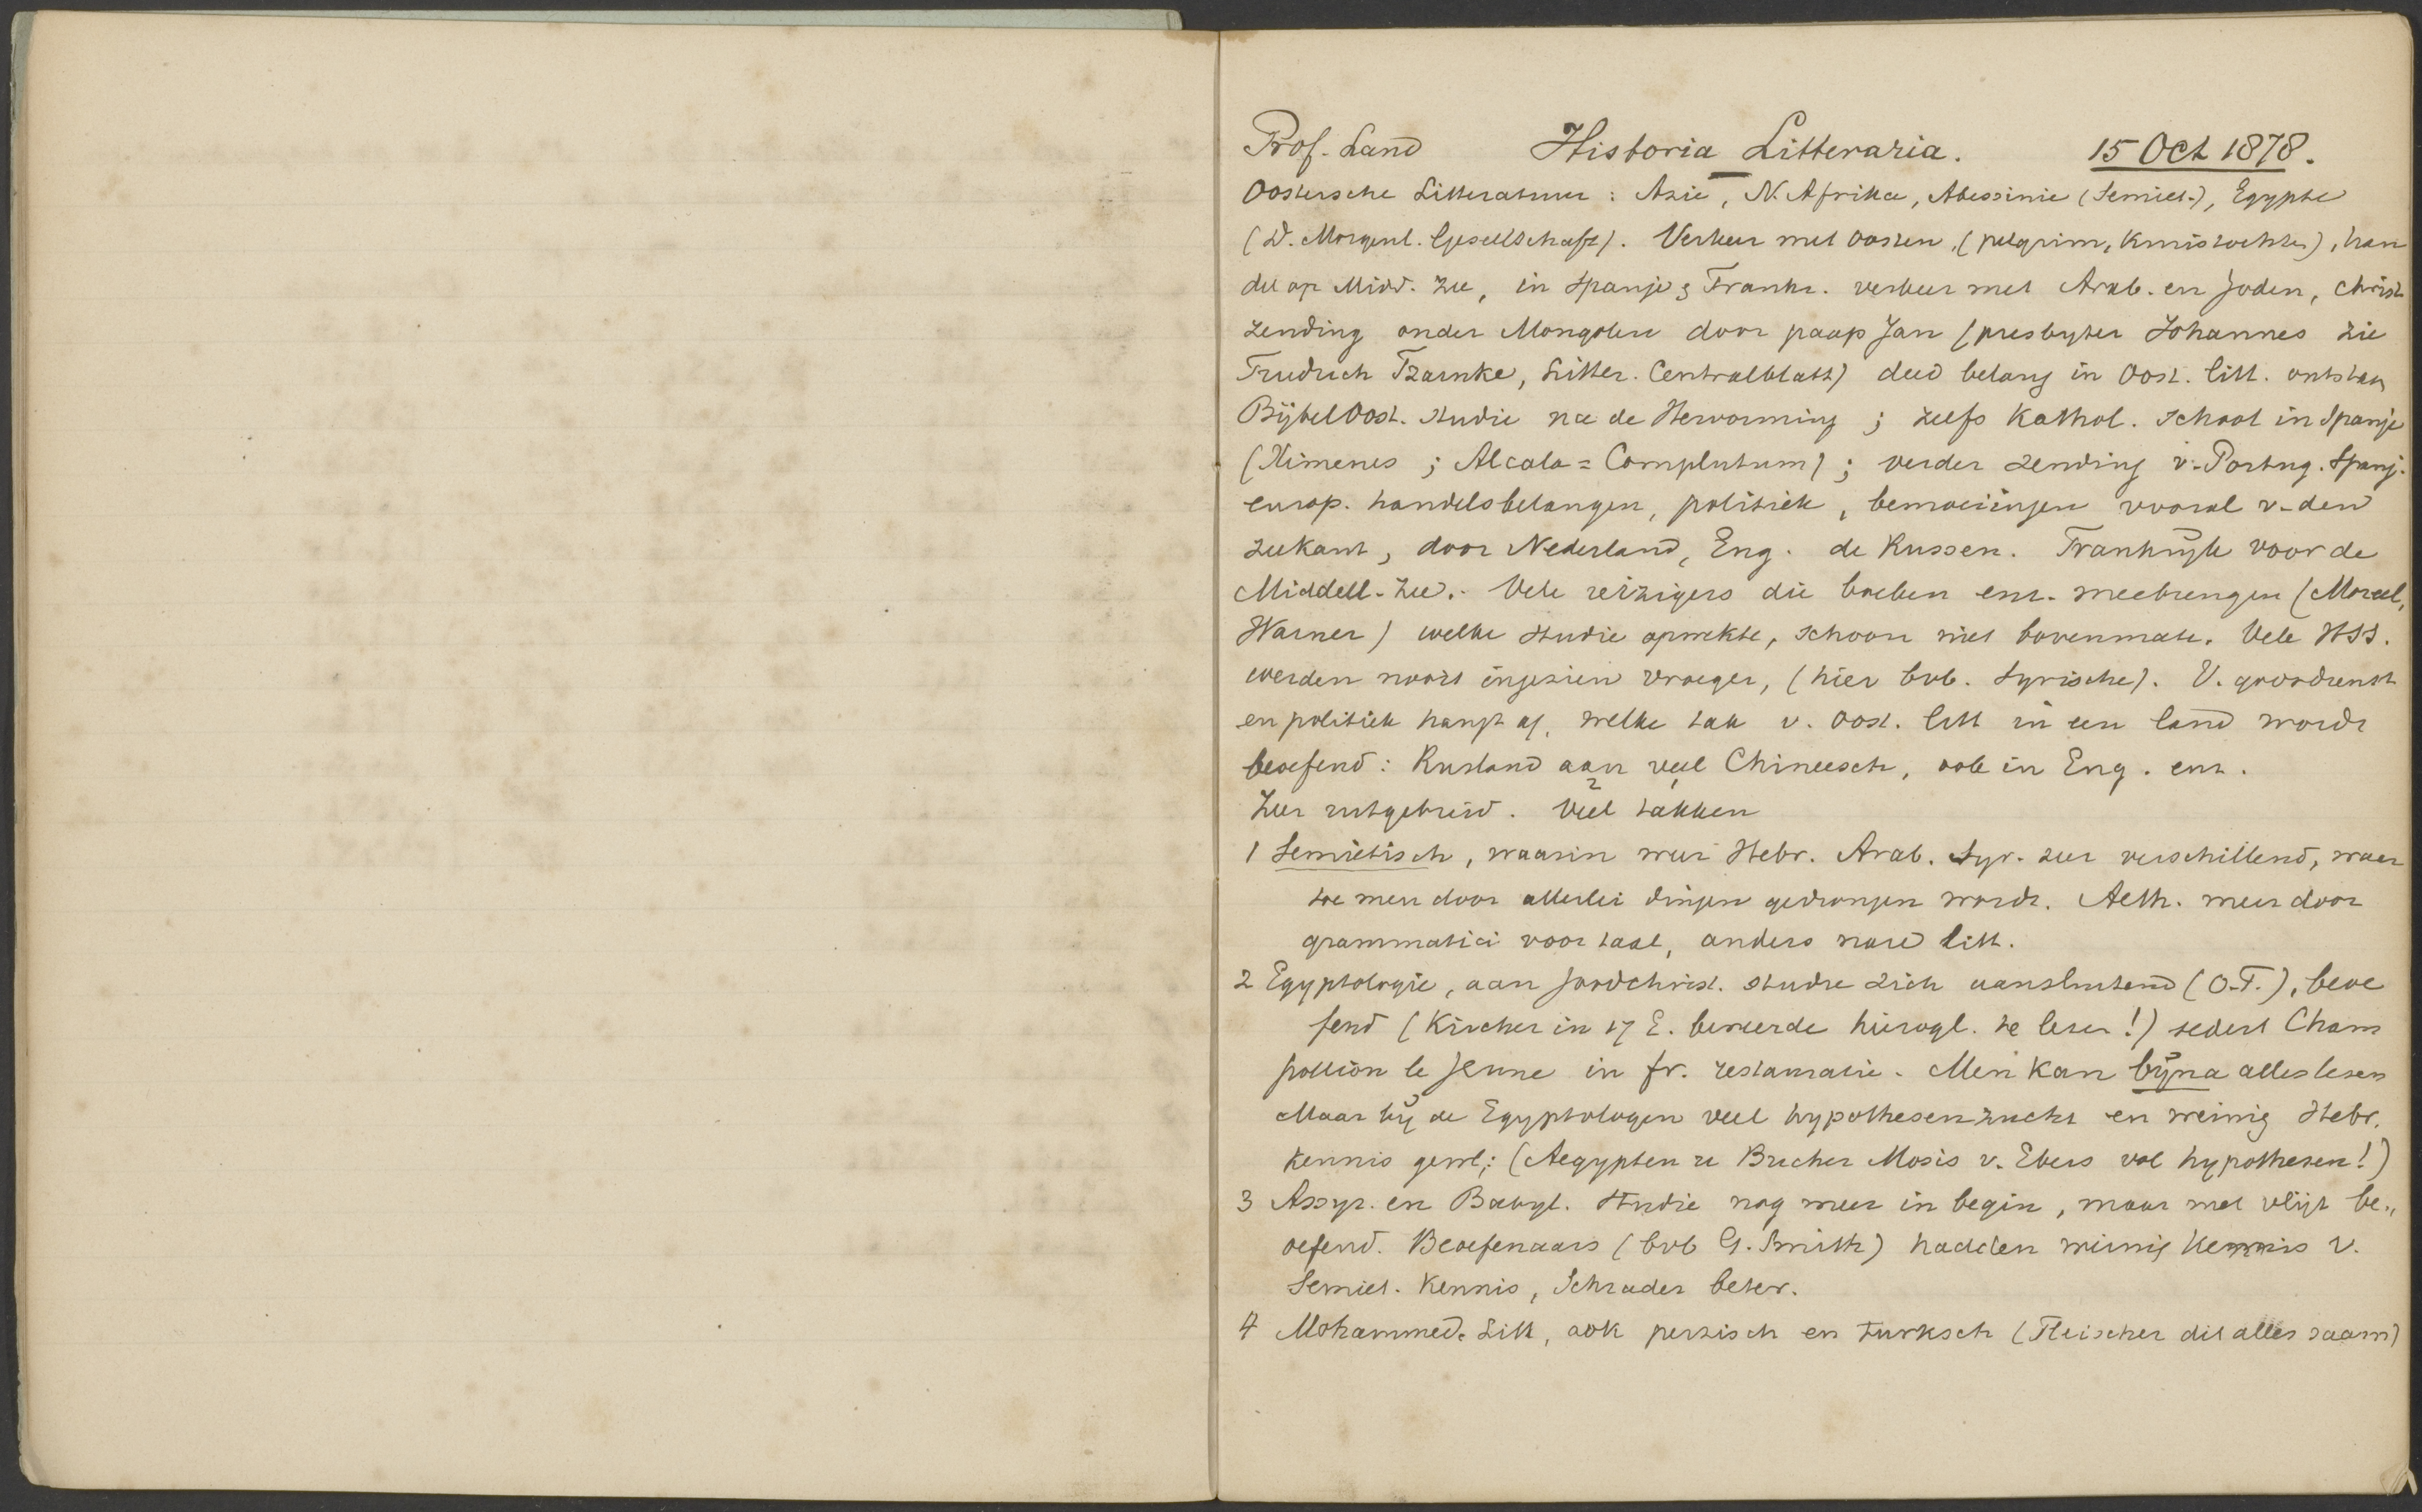 Prof. Land Historia Litteraria. 15 Oct 1878.
Oostersche Litteratuur: Azie, N. Afrika, Abessinie (Semiet.), Egypte
(D. Morgenl. Gesellschaft). Verkeer met Oosten, (pelgrim, kruistochten), han
del op Midd. zee, in Spanje & Frankr. verkeer met Arab. en Joden, christ
zending onder Mongolen door paap Jan (presbyter Johannes zie
Friedrich Tzarnke, Litter. Centralblatt) deed belang in Oost. litt. ontstaan
Bijbel Oost. studie na de Hervorming; zelfs Kathol. school in Spanje
(Ximenes; Alcala = Complutum); verder zending v. Portug. Spanj.
europ. handelsbelangen, politiek, bemoeiingen vooral v. den
zeekant, door Nederland, Eng. de Russen. Frankrijk voor de
Middell. Zee. Vele reizigers die boeken enz. meebrengen (Moreel,
Warner) welke studie opwekte, schoon niet bovenmate. Vele HSS.
werden nooit ingezien vroeger, (hier bvb. Syrische). V. godsdienst
en politiek hangt af, welke tak v. Oost. litt in een land wordt
beoefend: Rusland aan veel Chineesch, ook in Eng. enz.
Zeer uitgebreid. Veel takken
1 Semietisch, waarin weer Hebr. Arab. Syr. zeer verschillend, waar
toe men door allerlei dingen gedrongen wordt. Aeth. meer door
grammatici voor taal, anders litt.
2 Egyptologie, aan Joodchrist. studie zich aansluitend (O.T.), beoe
fend (Kircher in 17 E. beweerde hierogl. te lezen!) sedert Cham
pollion le Jeune in fr. restauratie. Men kan bijna alles lezen
Maar bij de Egyptologen veel hypothesenzucht en weinig Hebr.
kennis gewl; (Aegypten u Bucher Mosis v. Ebers vol hypothesen!)
3 Assyr. en Babyl. studie nog meer in begin, maar met vlijt be„
oefend. Beoefenaars (bvb G. Smith) hadden weinig kennis v.
Semiet. kennis, Schrader beter.
4 Mohammed. Litt, ook perzisch en turksch (Fleischer dit alles saam)